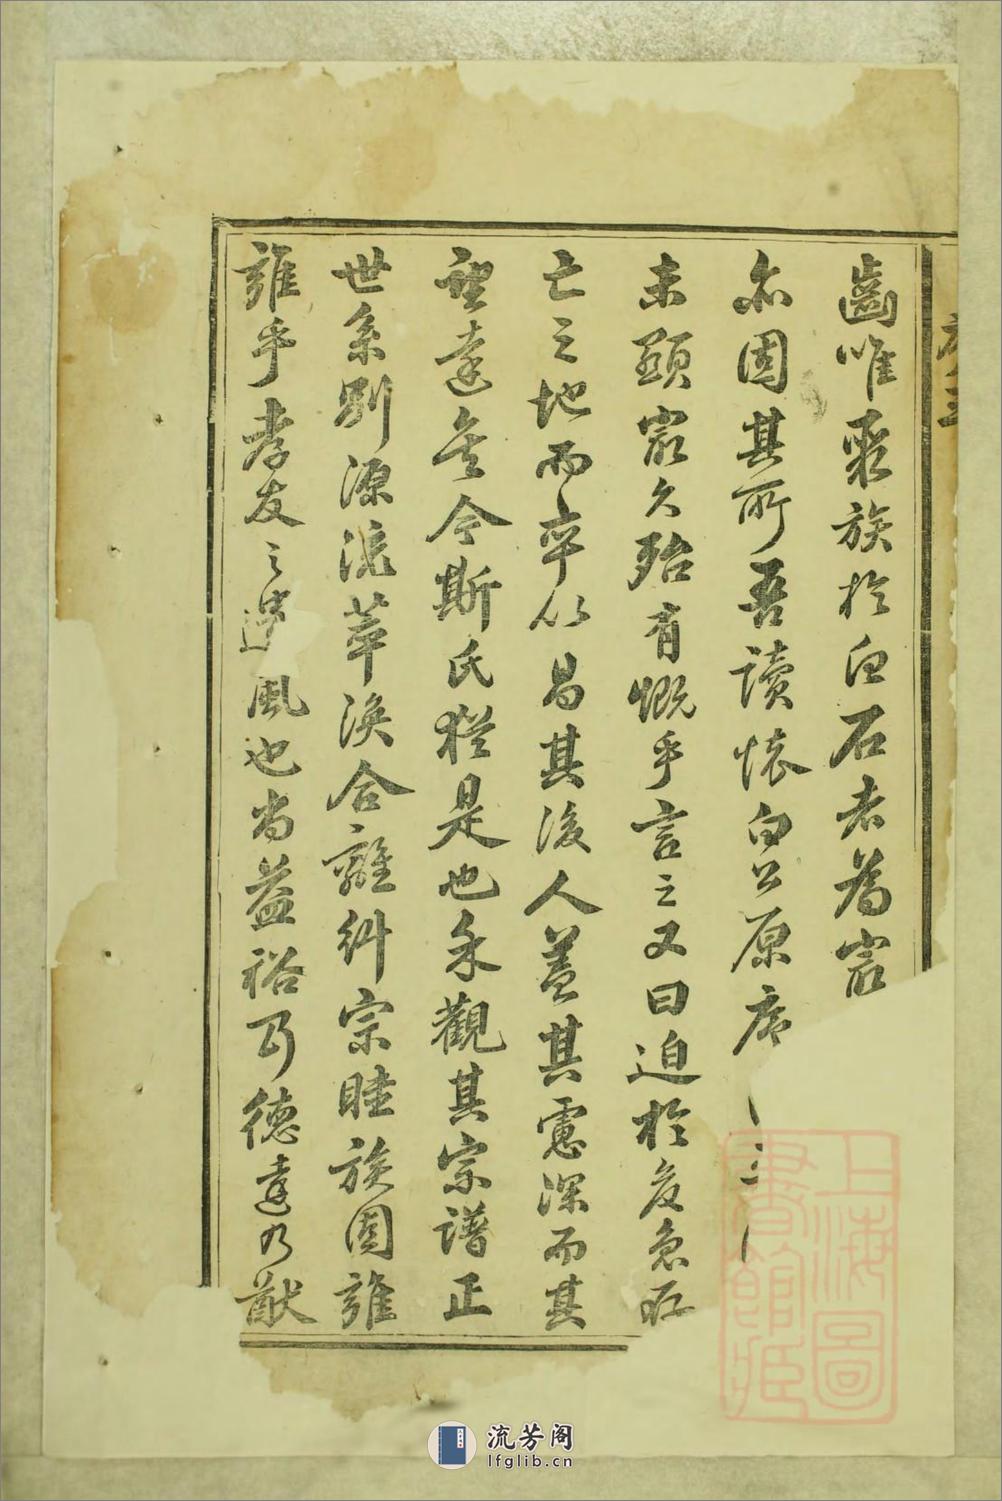 齒唯聚族於白石者為最
亦固其所吾讀懷白公原序
未顯最久殆有慨乎言之又曰迫於危急存
亡之地而卒以昌其後人蓋其慮深而其
望遠矣今斯氏猶是也余觀其宗譜正
世系別源流萃渙合離糾宗睦族固雍
雍乎孝友之遺風也尚益裕乃德遠乃猷
上海圖書館藏
流芳阁
lfglib.cn